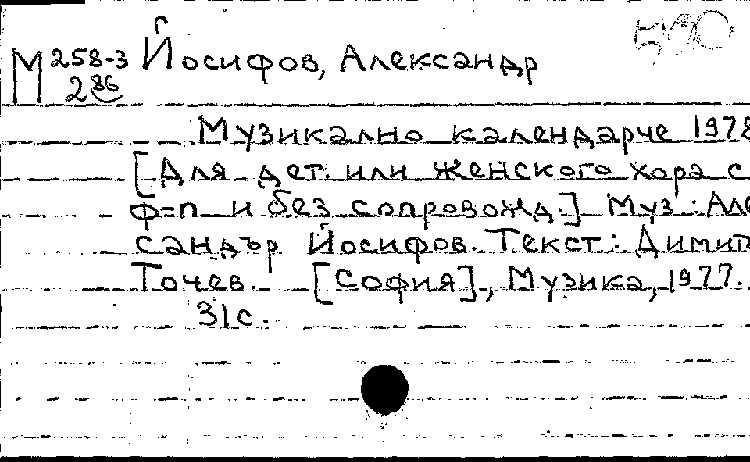 М 258-3 Йосифов, Александр
286
Музикално календарче 1978
[Для дет. или женского хора с
ф=п и без сопровожд.] Муз.: Але
сандър Йосифов. Текст: Димит
Точев. [София], Музика, 1977.
31с.